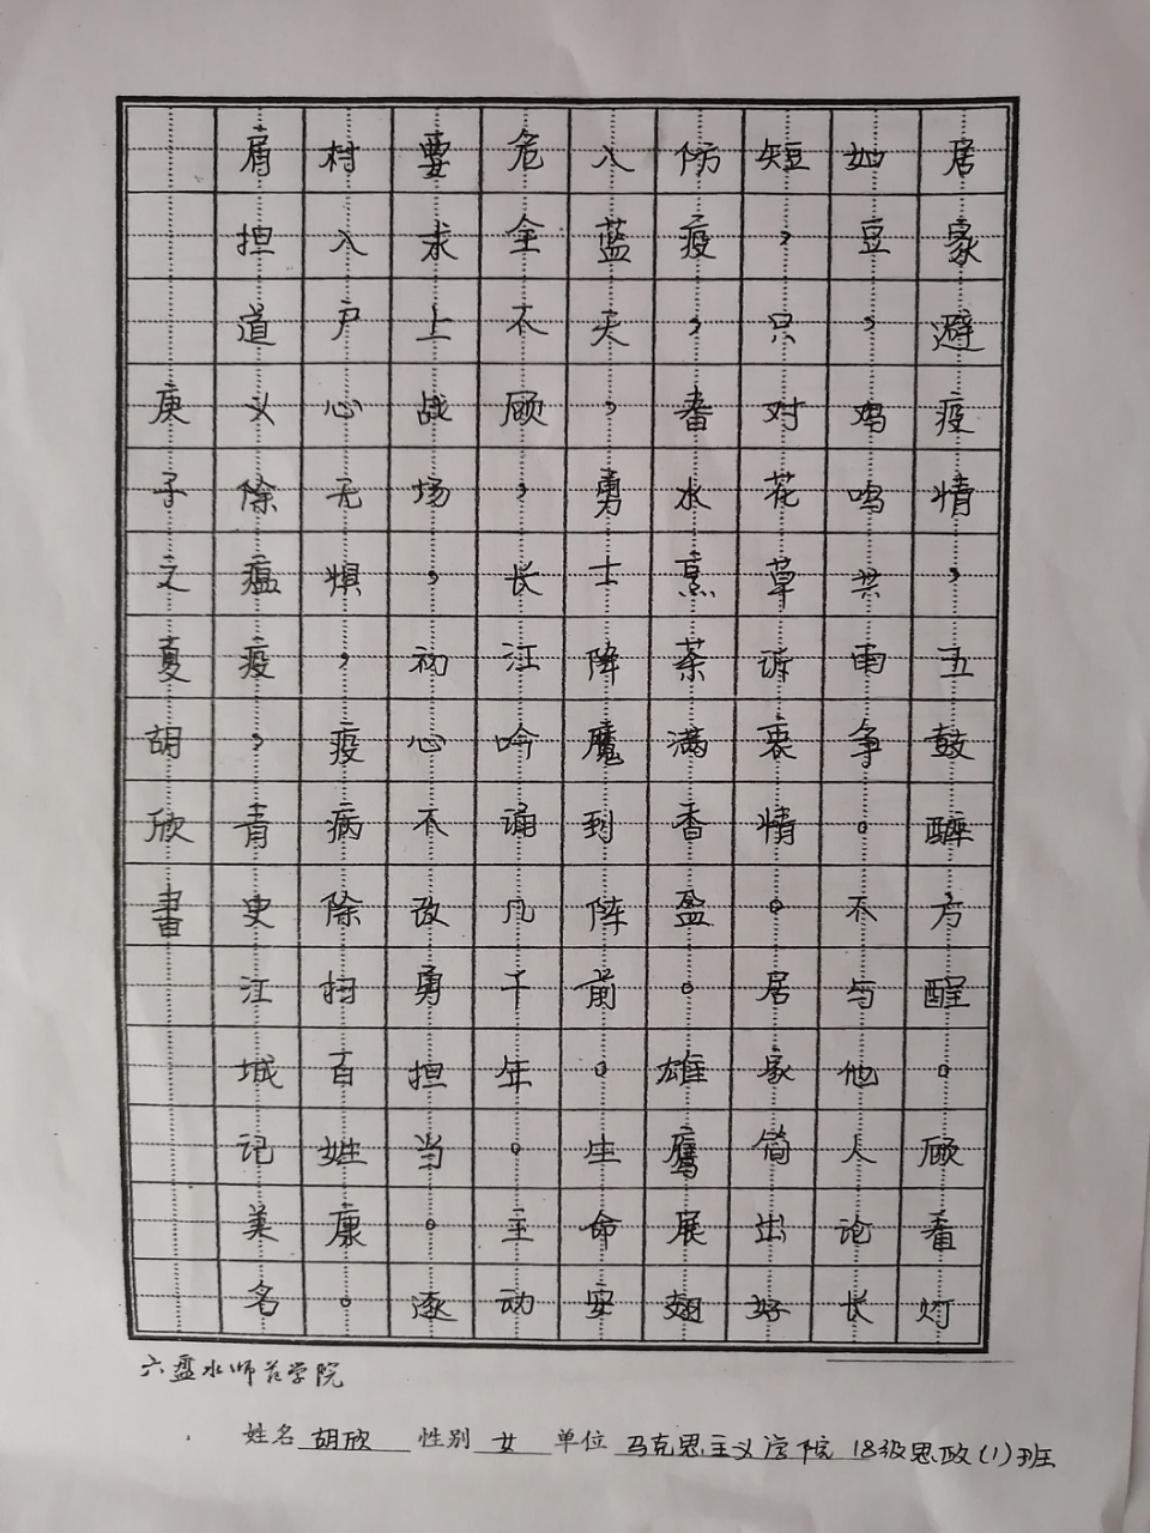 居家避疫情，五鼓醉方醒。顾看灯
如豆，鸡鸣共雨争。不与他人论长
短，只对花草诉衷情。居家简出好
防疫，春水烹茶满香盈。雄鹰展翅
入蓝天，勇士降魔到阵前。生命安
危全不顾，长江吟诵几千年。主动
要求上战场，初心不改勇担当。逐
村入户心无惧，疫病除扫百姓康。
肩担道义除瘟疫，青史江城记美名
庚子之夏胡欣書
六盘水师范学院
姓名 胡欣 性别 女 单位 马克思主义学院 18级思政(1)班